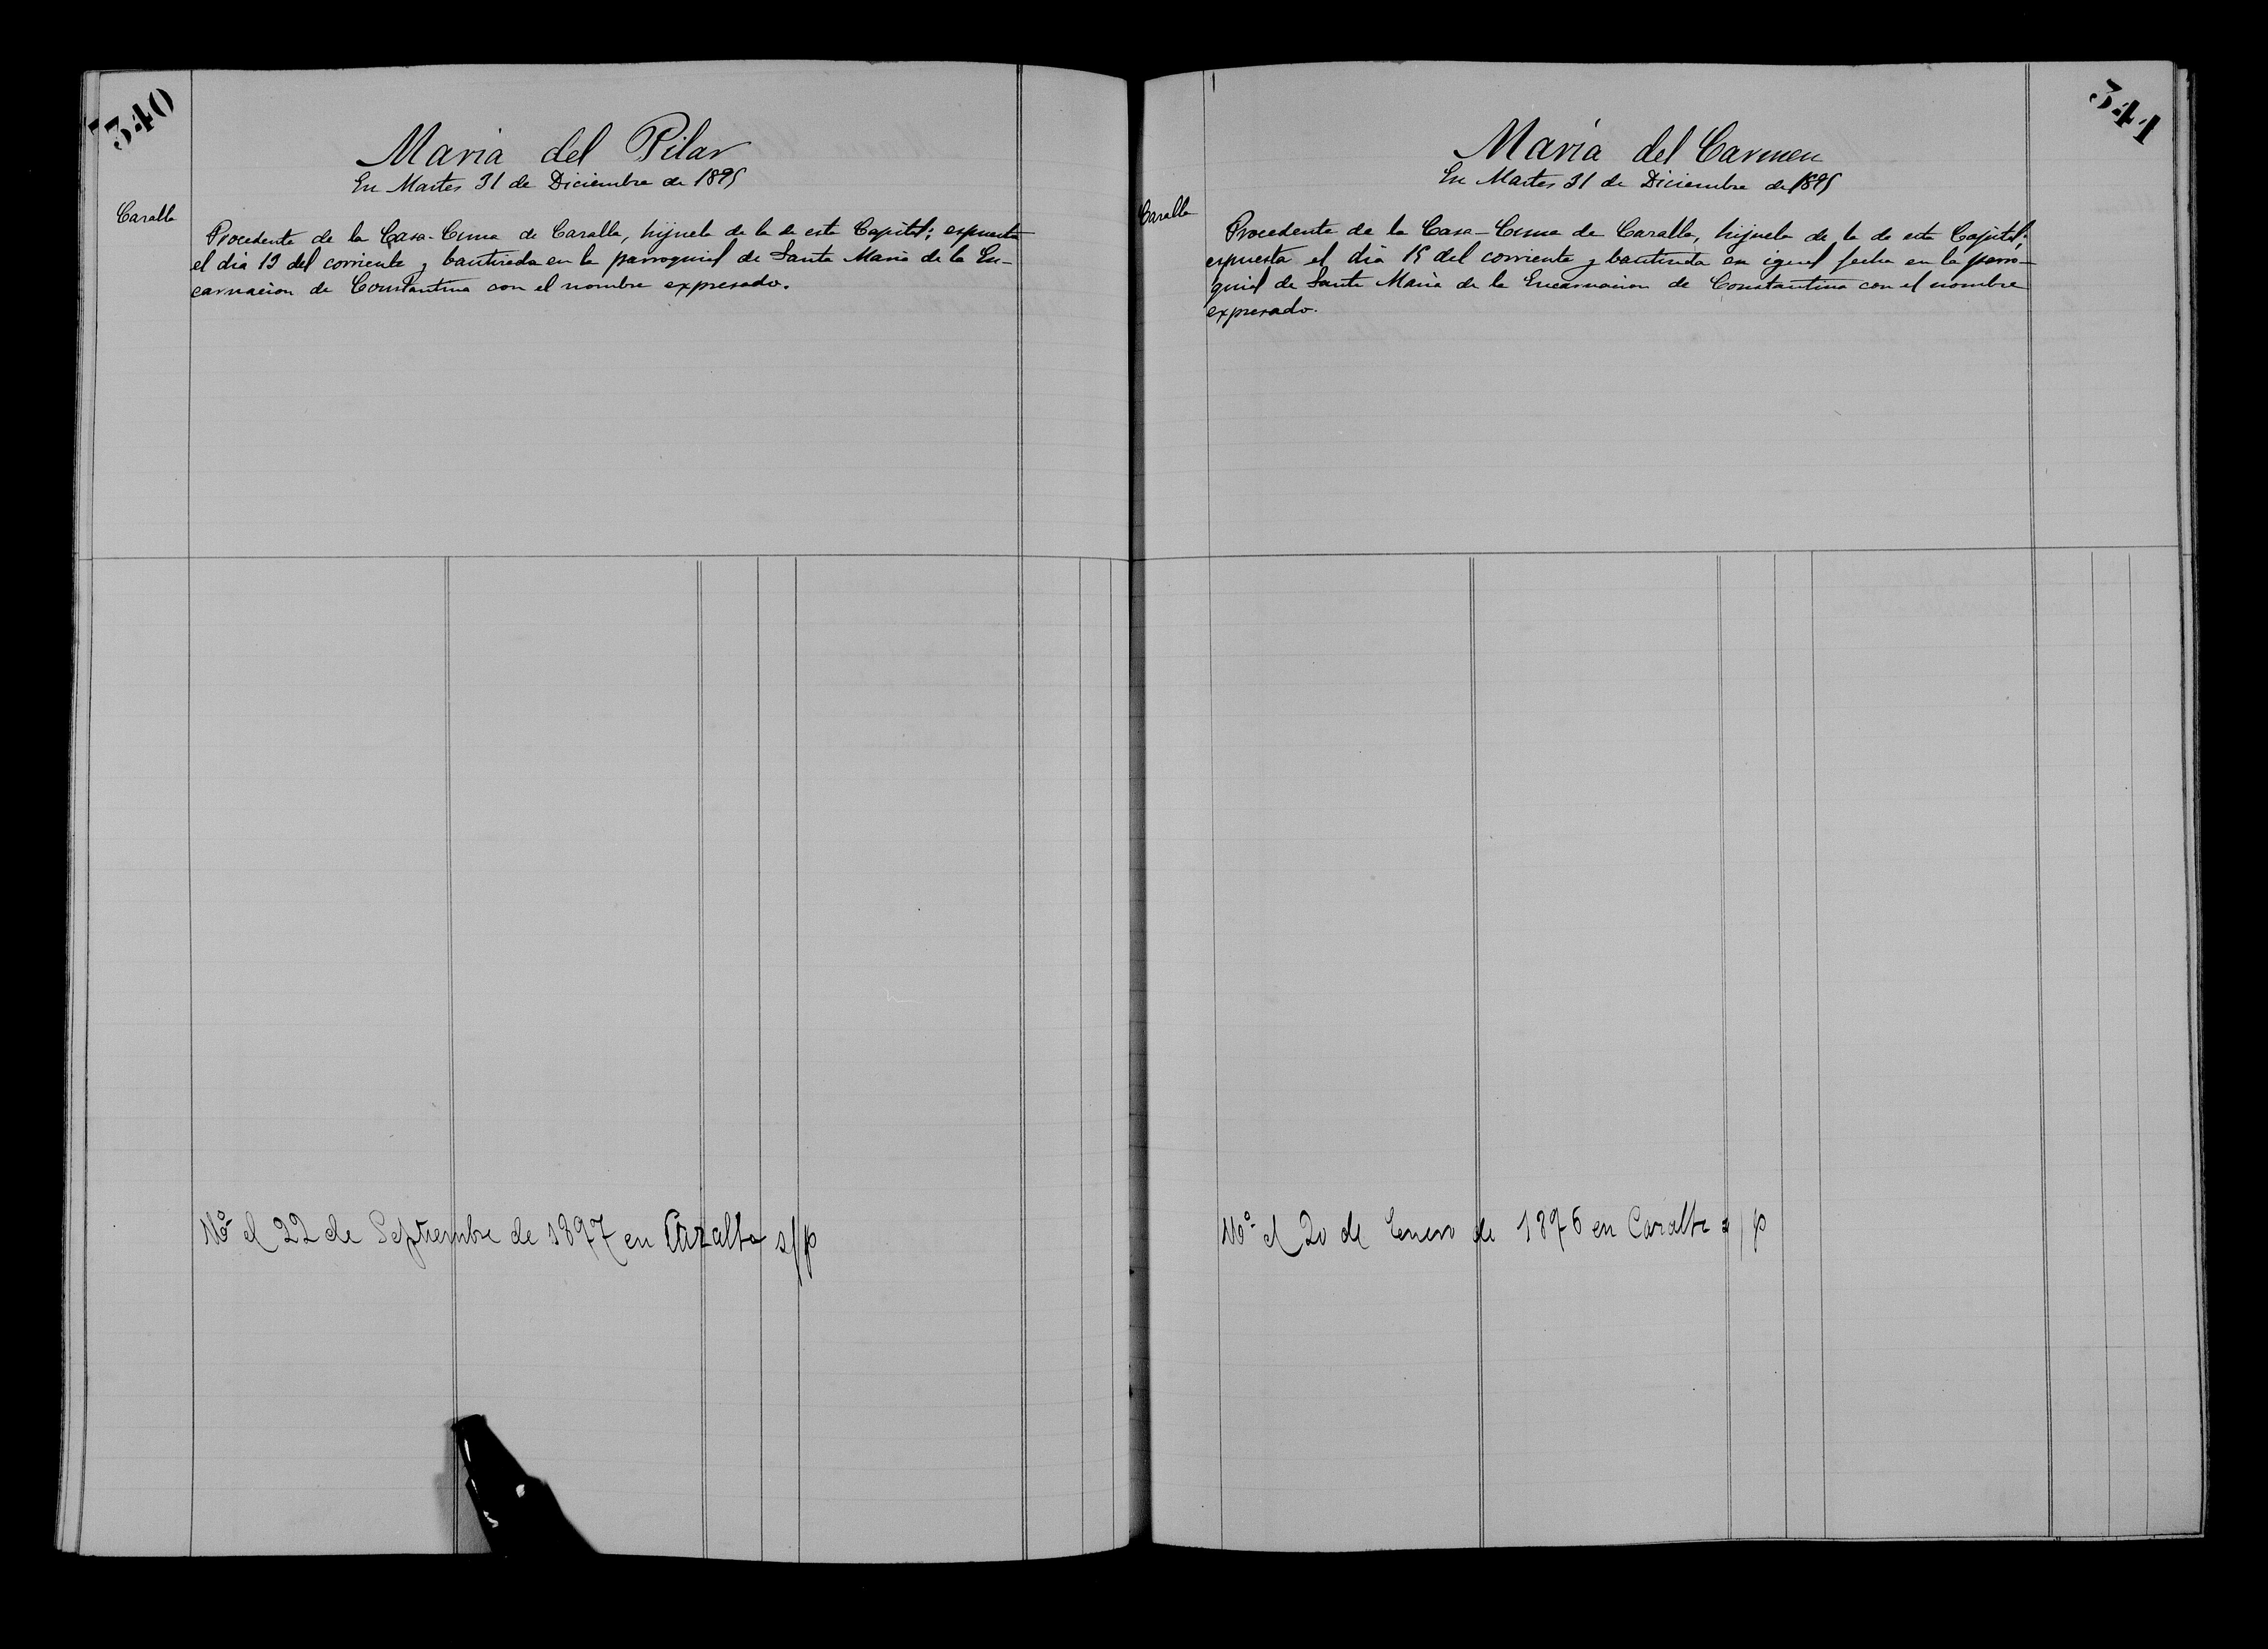 340
María del Pilar
En Martes 31 de Diciembre de 1895
Cazalla
Procedente de la Casa-Cuna de Cazalla, hijuela de la de esta Capital; espuesta
el dia 13 del corriente y bautizada en la parroquial de Santa María de la En-
carnacion de Constantina con el nombre expresado.
Mó el 22 de Septiembre de 1897 en Cazalla s/p
341
María del Carmen
En Martes 31 de Diciembre de 1895
Cazalla
Procedente de la Casa-Cuna de Cazalla, hijuela de la de esta Capital;
espuesta el dia 15 del corriente y bautizada en igual fecha en la parro-
quial de Santa María de la Encarnacion de Constantina con el nombre
expresado.
Mó el 20 de Enero de 1896 en Cazalla s/p